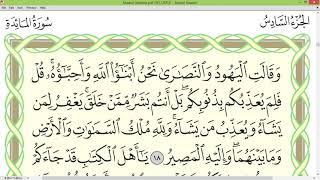 الجُزْءُ السَّادِسُ سُورَةُ المَائِدَةِ
وَقَالَتِ ٱلْيَهُودُ وَٱلنَّصَٰرَىٰ نَحْنُ أَبْنَٰٓؤُا۟ ٱللَّهِ وَأَحِبَّٰٓؤُهُۥ ۚ قُلْ
فَلِمَ يُعَذِّبُكُم بِذُنُوبِكُم ۖ بَلْ أَنتُم بَشَرٌ مِّمَّنْ خَلَقَ ۚ يَغْفِرُ لِمَن
يَشَآءُ وَيُعَذِّبُ مَن يَشَآءُ ۚ وَلِلَّهِ مُلْكُ ٱلسَّمَٰوَٰتِ وَٱلْأَرْضِ
وَمَا بَيْنَهُمَا ۖ وَإِلَيْهِ ٱلْمَصِيرُ ١٨ يَٰٓأَهْلَ ٱلْكِتَٰبِ قَدْ جَآءَكُمْ